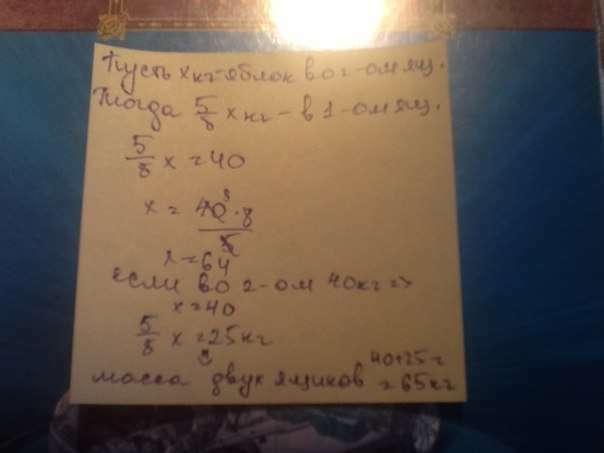 Пусть x кг-яблок во 2-ом ящ.
Тогда 5/8 x кг - в 1-ом ящ.
5/8 x = 40
x = 40⁸·8 / 5
x = 64
если во 2-ом 40кг =>
x = 40
5/8 x = 25кг
масса двух ящиков 40+25= =65кг